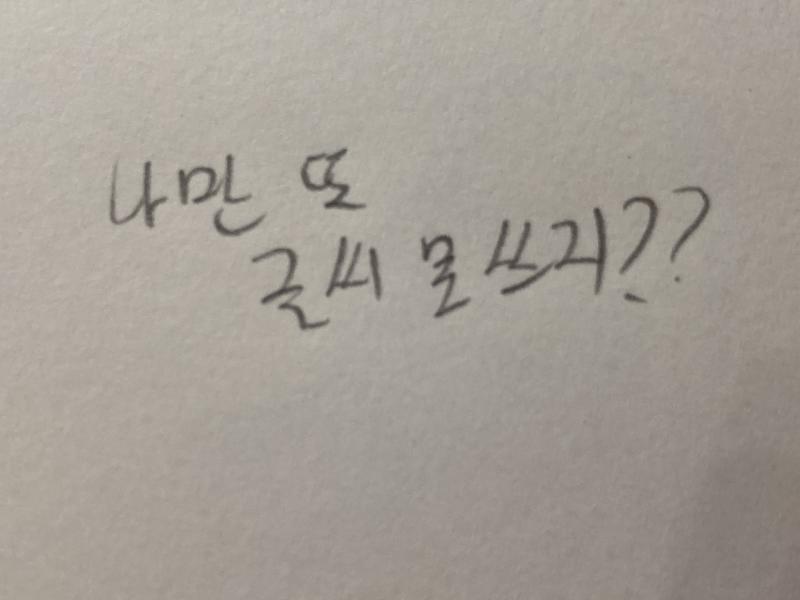 나만 또
글씨 못 쓰지??